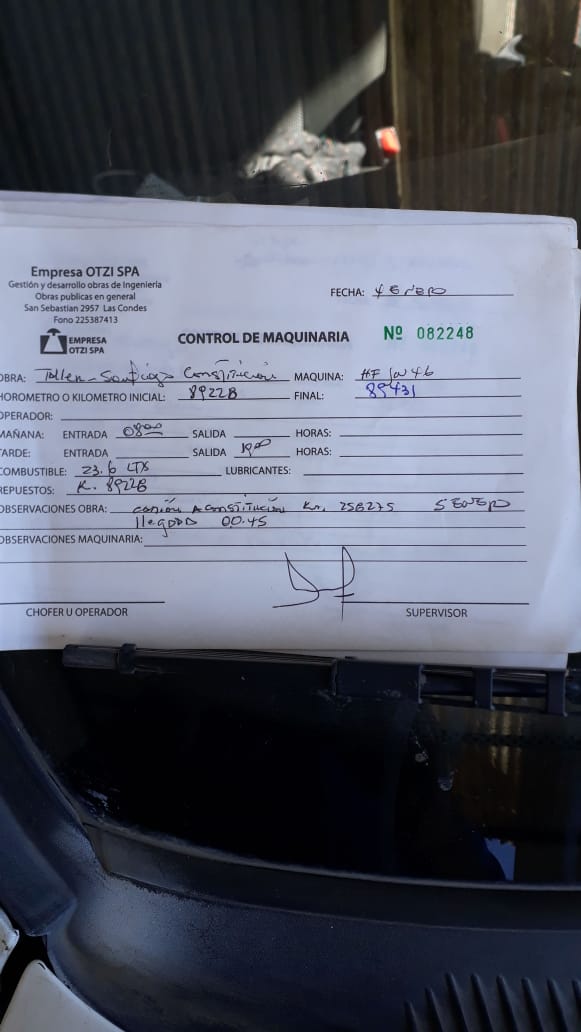 Empresa OTZI SPA
Gestión y desarrollo obras de Ingeniería
Obras publicas en general
San Sebastian 2957 Las Condes
Fono 225387413
EMPRESA
OTZI SPA
FECHA: 4 ENERO
CONTROL DE MAQUINARIA Nº 082248
OBRA: Taller-Santiago Constitucion MAQUINA:
HOROMETRO O KILOMETRO INICIAL: 89228 FINAL: 89431
OPERADOR:
MAÑANA: ENTRADA 08 SALIDA HORAS:
TARDE: ENTRADA SALIDA HORAS:
COMBUSTIBLE: 23.6 LTS LUBRICANTES:
REPUESTOS: K. 89228
OBSERVACIONES OBRA: camión A constitución Km. 258275 5 ENERO
llegada 00.45
OBSERVACIONES MAQUINARIA:
CHOFER U OPERADOR SUPERVISOR